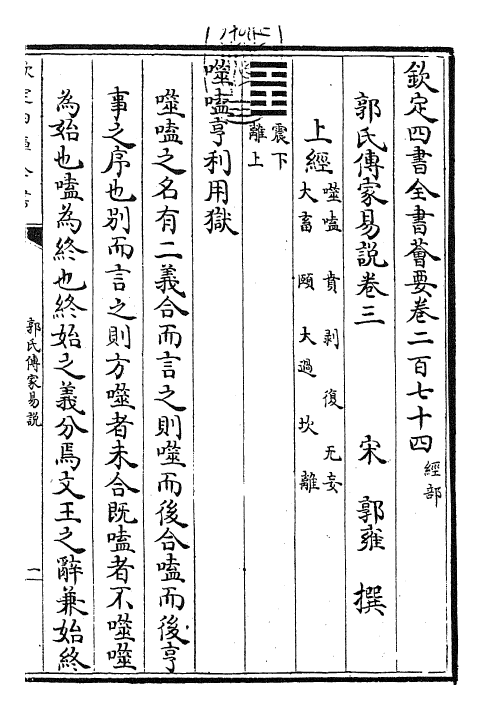 欽定四書全書薈要卷二百七十四 經部
郭氏傳家易說卷三
宋 郭雍 撰
上經
噬嗑 賁 剝 復 无妄
大畜 頤 大過 坎 離
震下
離上
噬嗑亨利用獄
噬嗑之名有二義合而言之則噬而後合嗑而後亨
事之序也別而言之則方噬者未合既嗑者不噬噬
為始也嗑為終也終始之義分焉文王之辭兼始終
郭氏傳家易說
二